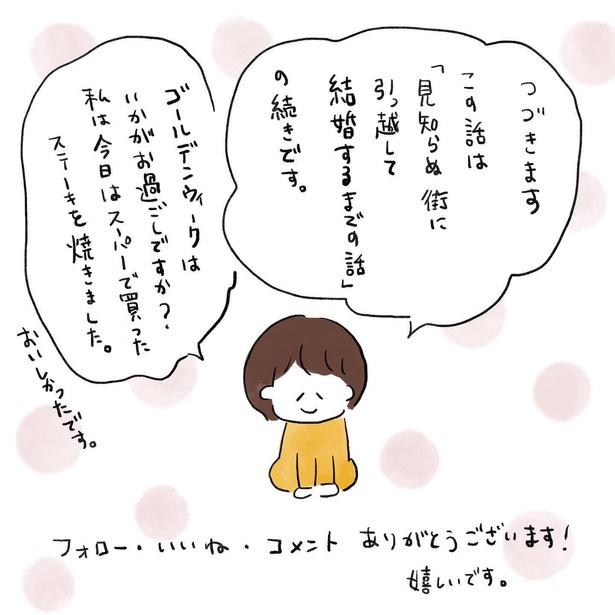 つづきます
この話は
「見知らぬ街に
引っ越して
結婚するまでの話」
の続きです。
ゴールデンウィークは
いかがお過ごしですか?
私は今日はスーパーで買った
ステーキを焼きました。
おいしかったです。
フォロー・いいね・コメント ありがとうございます!
嬉しいです。